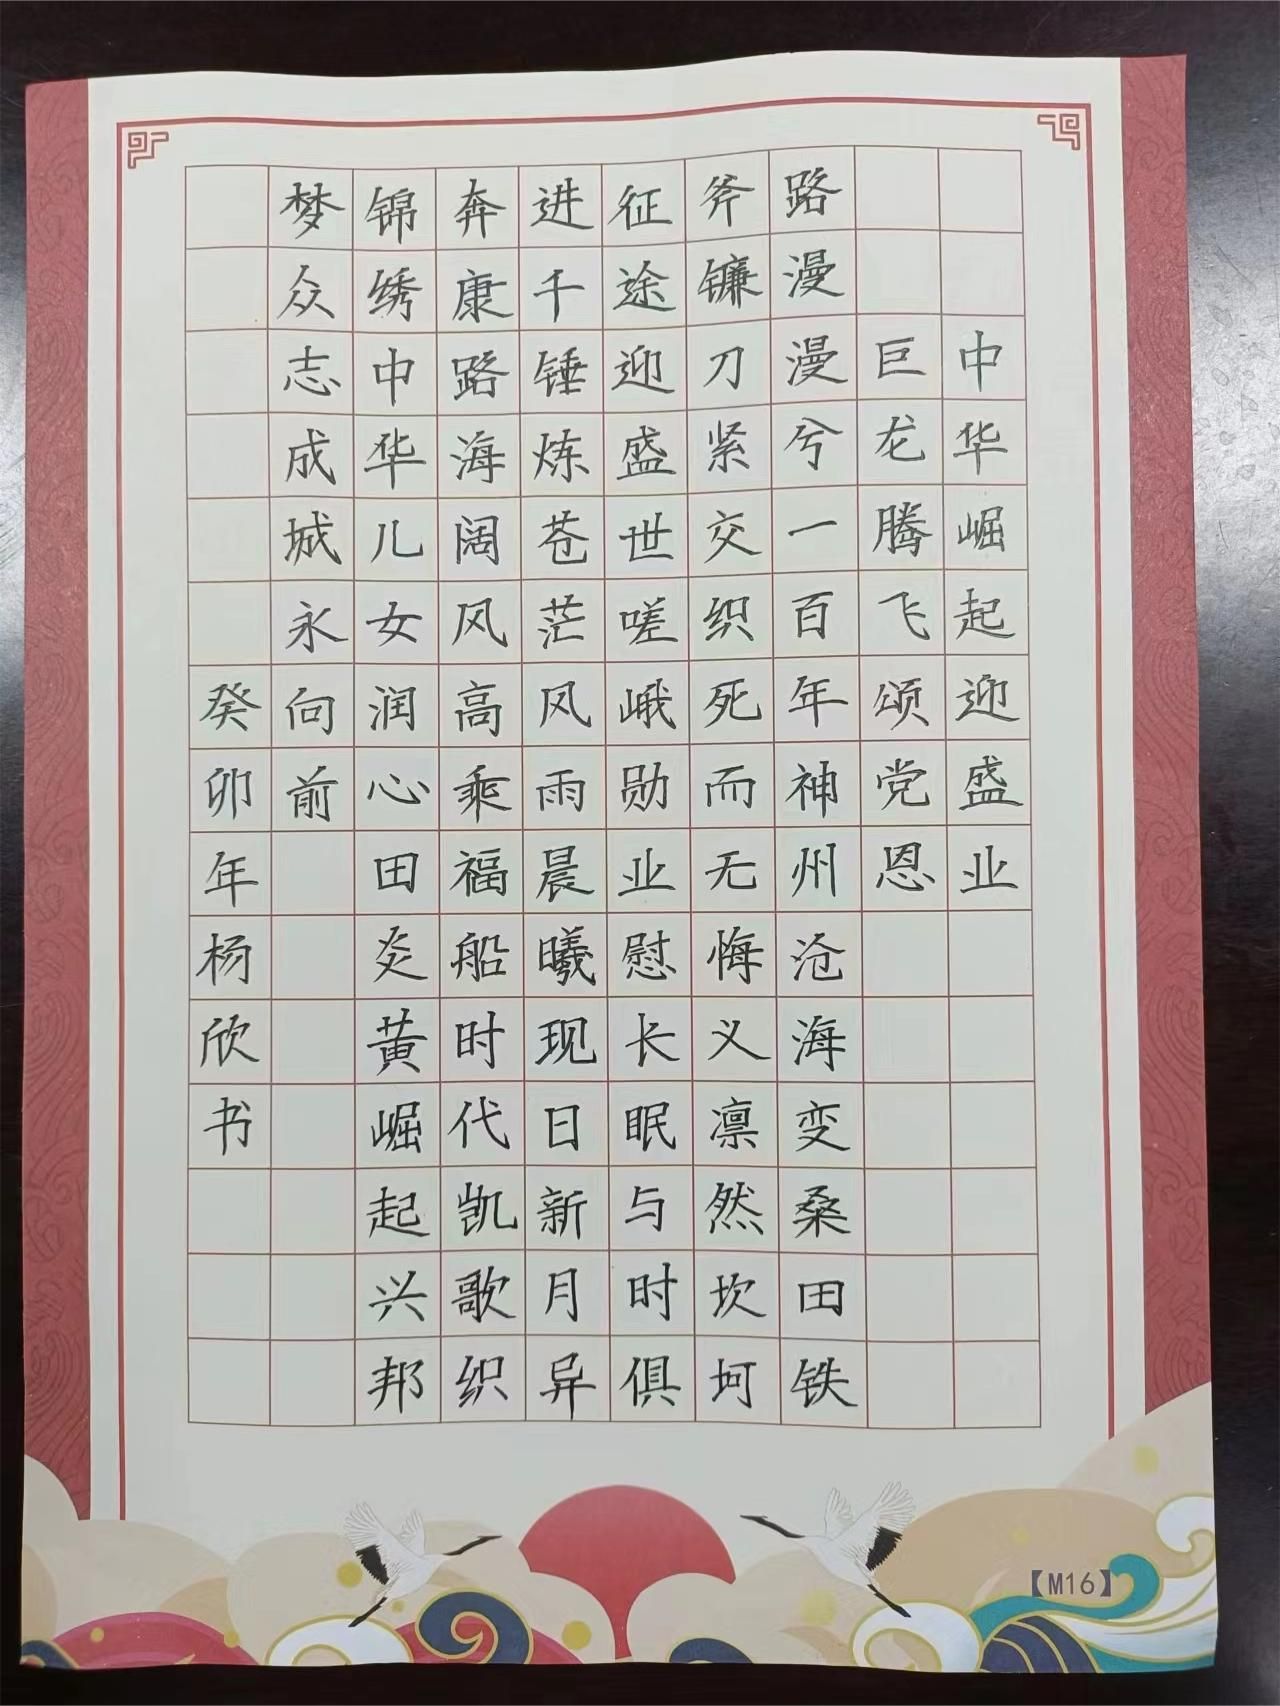 中华崛起迎盛业
巨龙腾飞颂党恩
路漫漫兮一百年神州沧海变桑田铁
斧镰刀紧交织死而无悔义凛然坎坷
征途迎盛世嗟峨勋业慰长眠与时俱
进千锤炼苍茫风雨晨曦现日新月异
奔康路海阔风高乘福船时代凯歌织
锦绣中华儿女润心田炎黄崛起兴邦
梦众志成城永向前
癸卯年杨欣书
【M16】